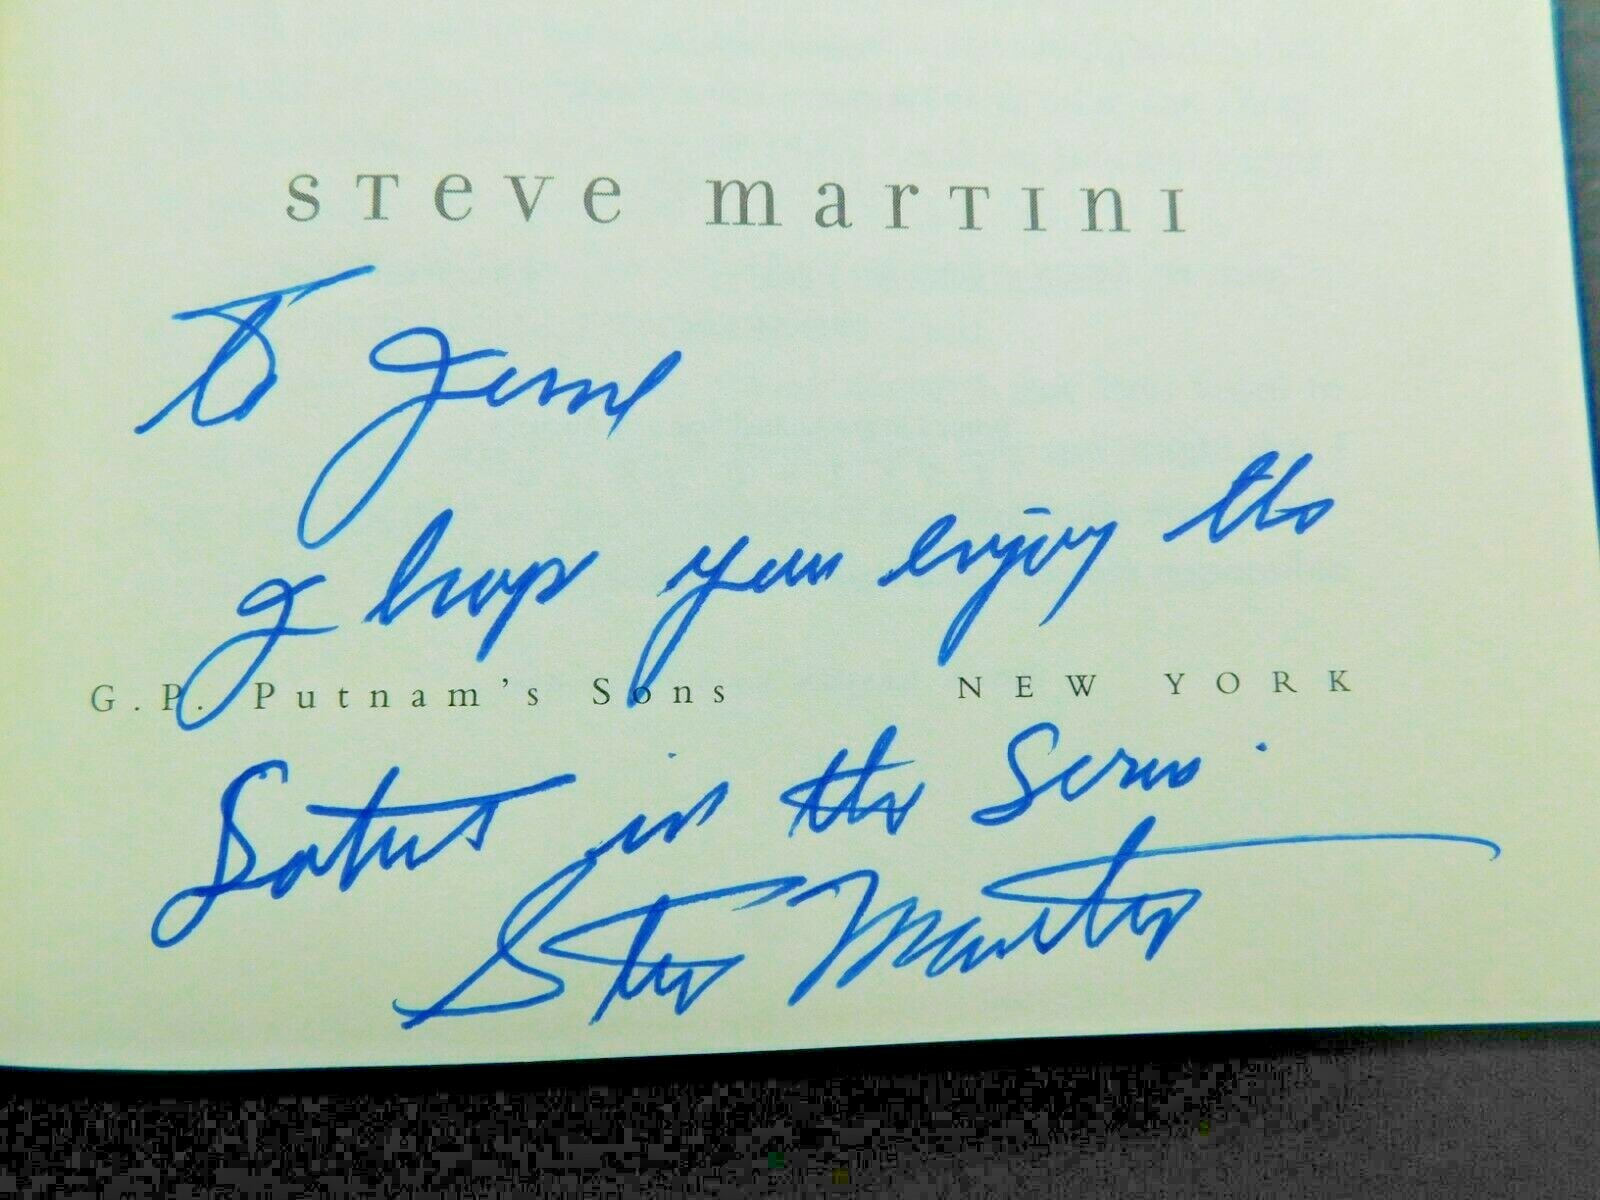 steve martini
To Jesse
I hope you enjoy the
G.P. Putnam's Sons NEW YORK
latest in the Series.
Steve Martini